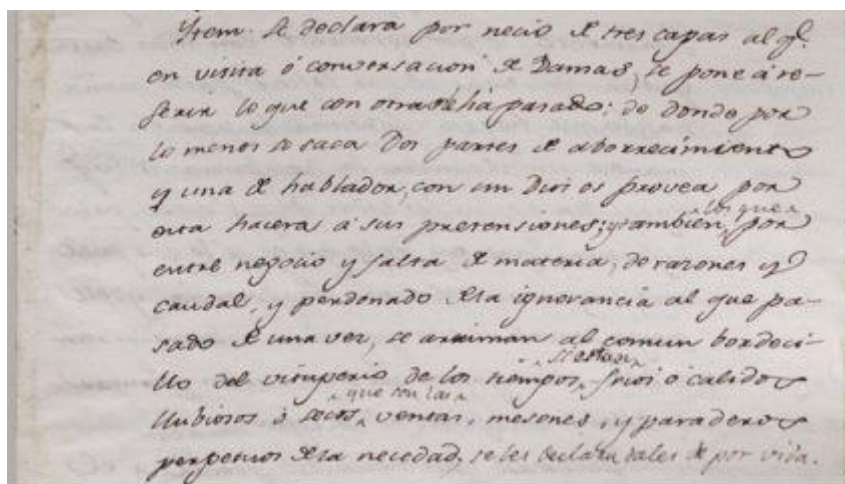 Ytem. Se declara por necio de tres capas al q̃.
en visita ó conversacion de Damas, se pone á re-
ferir lo que con otras le há pasado; de donde por
lo menos se saca Dos partes de aborrecimiento
y una de hablador, con un Dios os provea por
esta hacera á sus pretensiones; y tambien, los que por
entre negocio y falta de materia, de razones y
caudal, y perdonado de la ignorancia al que pa-
sado de una vez, se arriman al comun bordeci-
llo del vituperio de los tiempos, si estan frios ó calidos
llubiosos ó secos, que son las ventas, mesones, y paraderos
perpetuos de la necedad, se les declara tales de por vida.